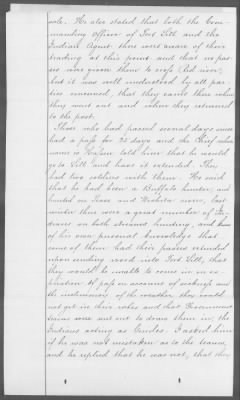 sole. He also stated that both the Com-
manding Officer of Fort Sill and the
Indian Agent there were aware of their
trading at this point and that no pas-
ses were given them to
but it was well understood by all par-
ties concerned, that they came there when
they went out and when they returned
to the post.
Those who had passed several days since
had a pass for 25 days and the Chief whose
name is told him that he would
go to Sill and have it extended. They
had two soldiers with them. He said
that he had been a Buffalo hunter, and
hunted on Pease and Wichita rivers, last
winter there were a great number of In-
dians on both streams hunting, and knew
of his own personal knowledge that
some of them had their passes extended
upon sending word into Fort Sill, that
they would be unable to come in on ex-
piration of pass on account of sickness and
the inclemency of the weather, they could
not get in their robes and that Government
trains were sent out to draw them in, the
Indians acting as Guides. I asked him
if he was not mistaken as to the trains,
and he replied that he was not, that they